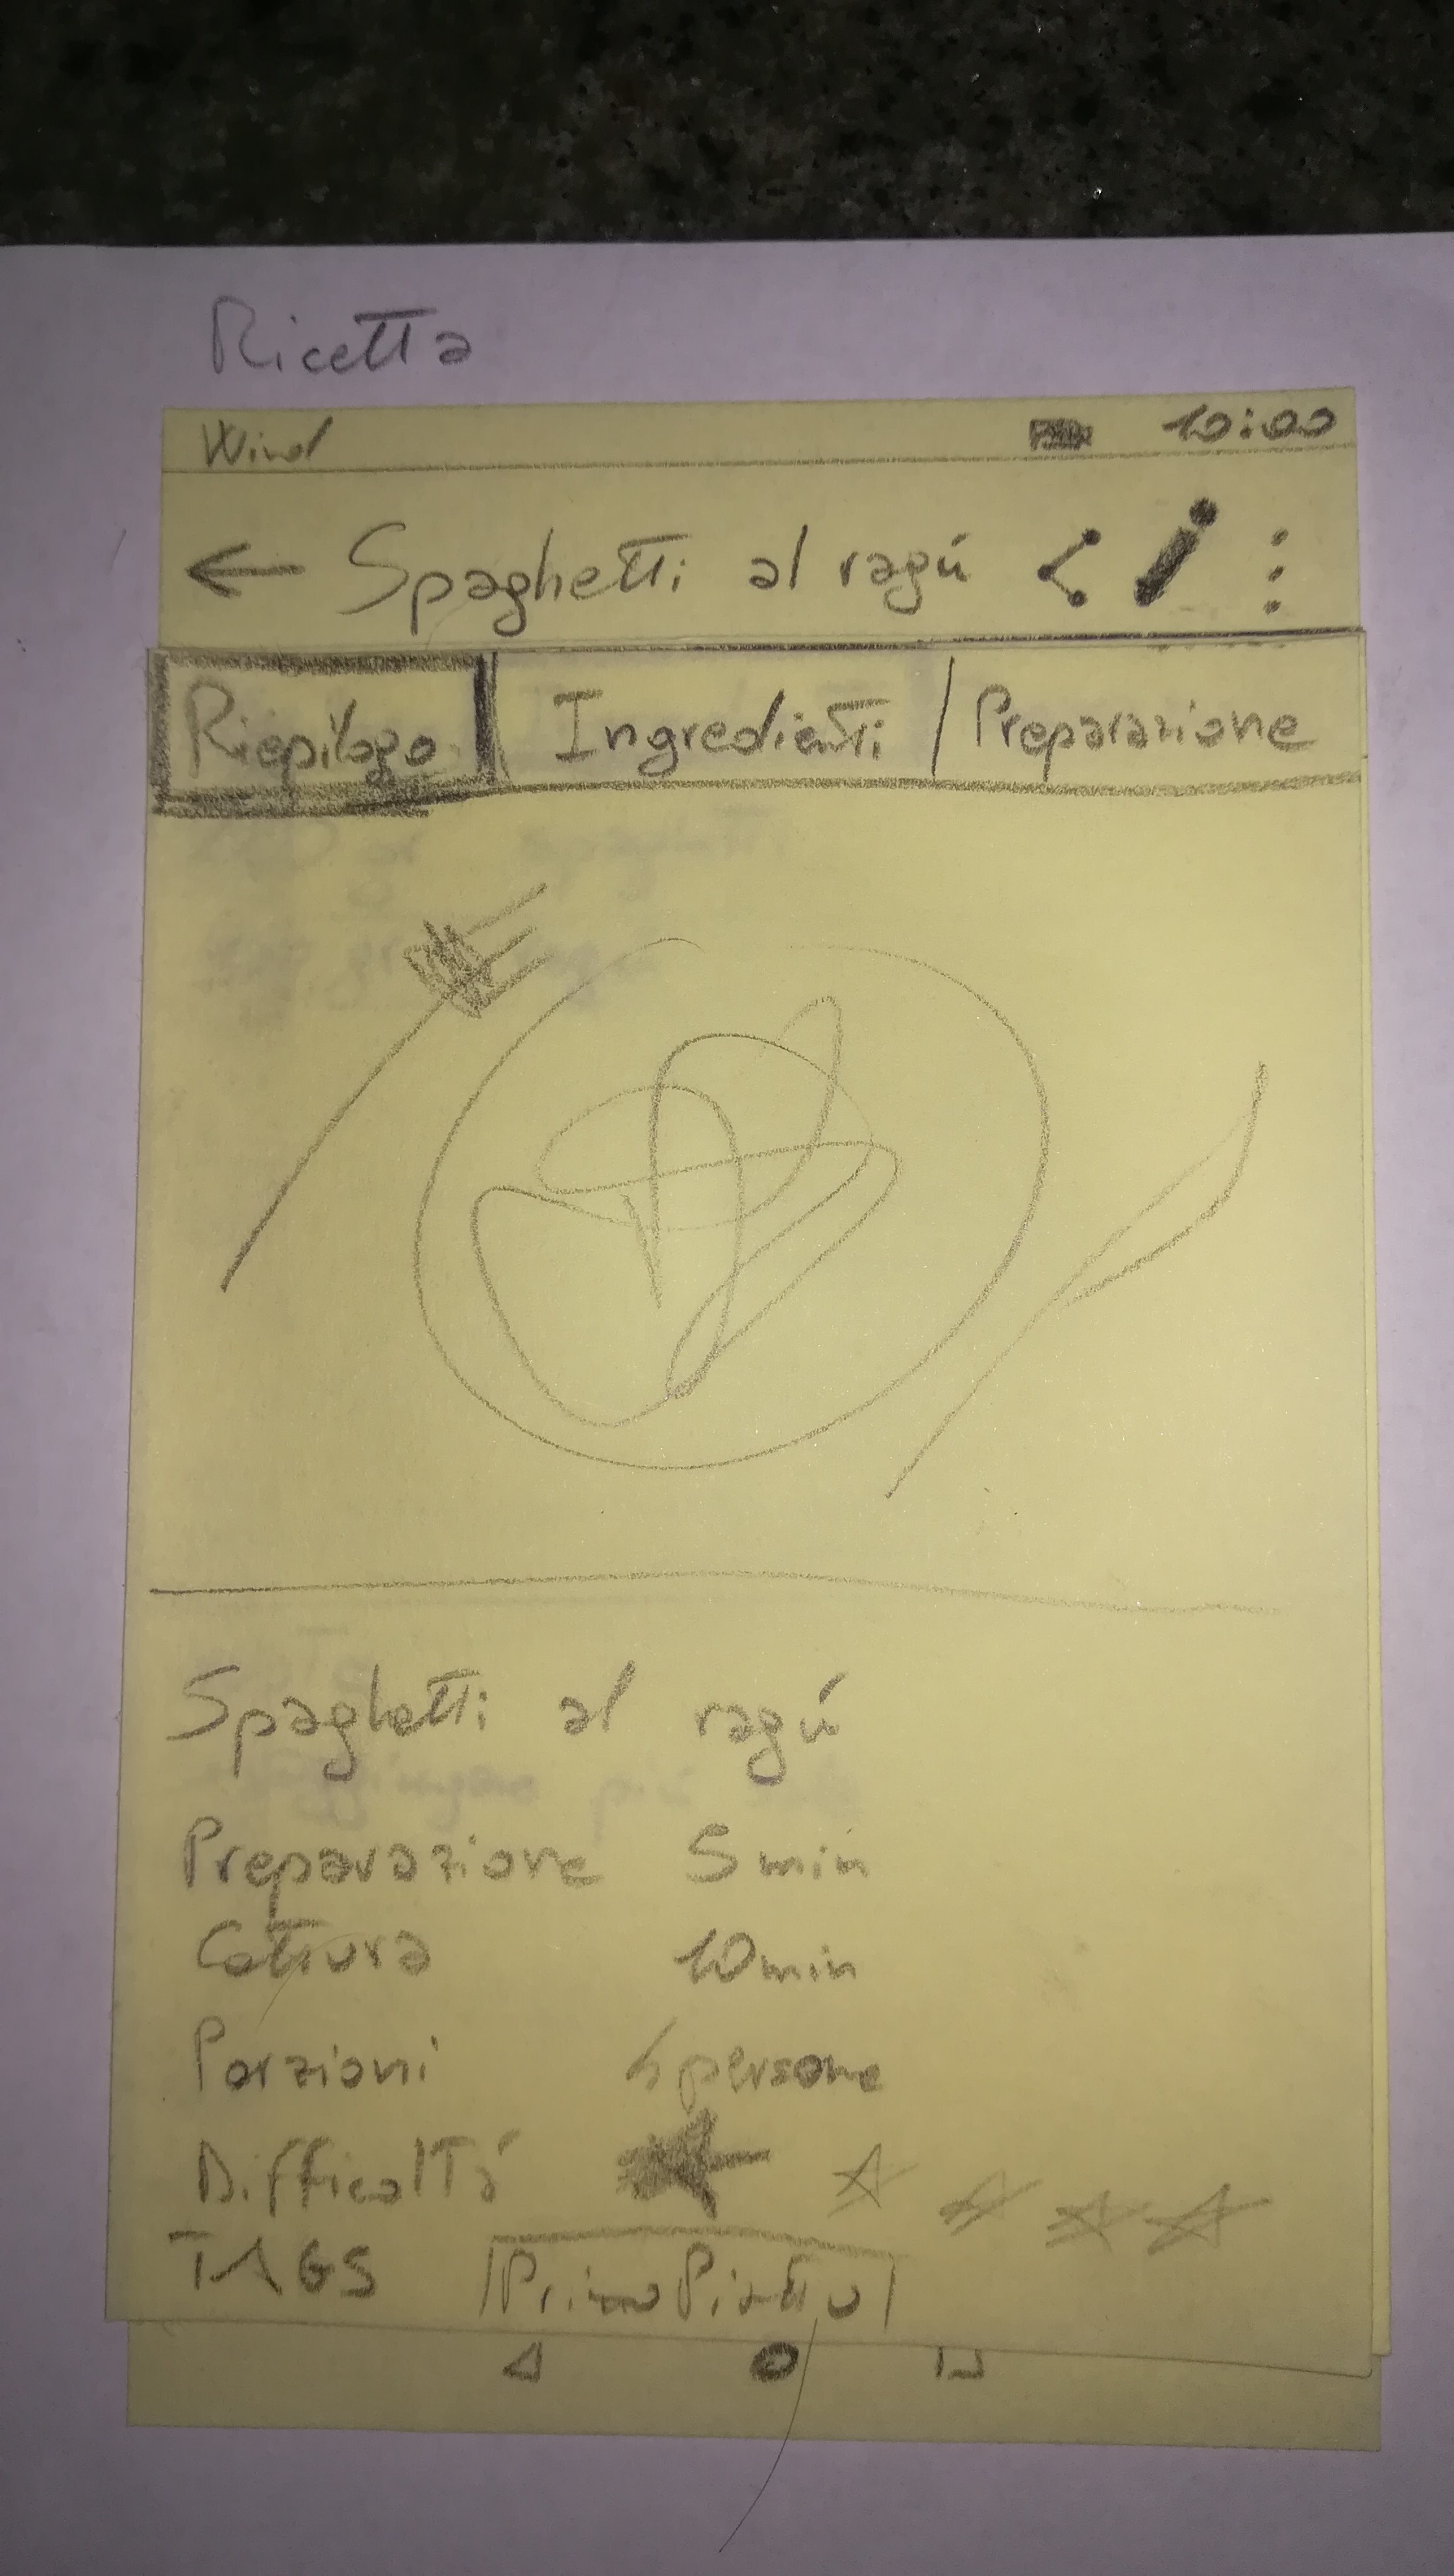 Ricetta
Wind 10:00
Spaghetti al ragú
Riepilogo Ingredienti Preparazione
Spaghetti al ragú
Preparazione 5 min
Cottura 10 min
Porzioni 4 persone
Difficoltá
TAGS Primo Piatto